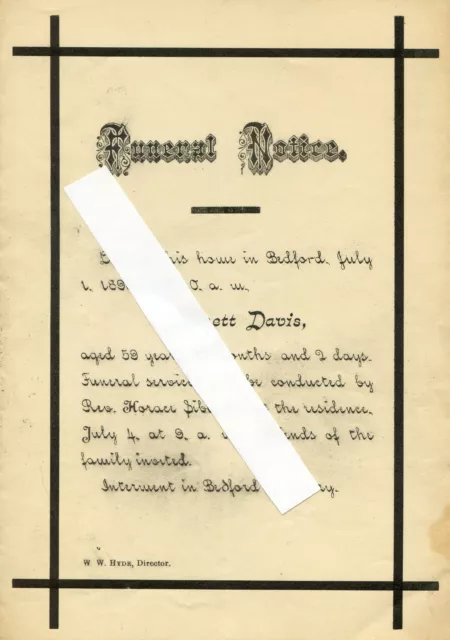 Funeral Notice.
his home in Bedford, July
1, 189 0. a. m.,
ott Davis,
aged 59 yea onths and 2 days.
Funeral service be conducted by
Rev. Horace the residence,
July 4, at 9. a. nds of the
family invited.
Interment in Bedford ry.
W. W. HYDE, Director.